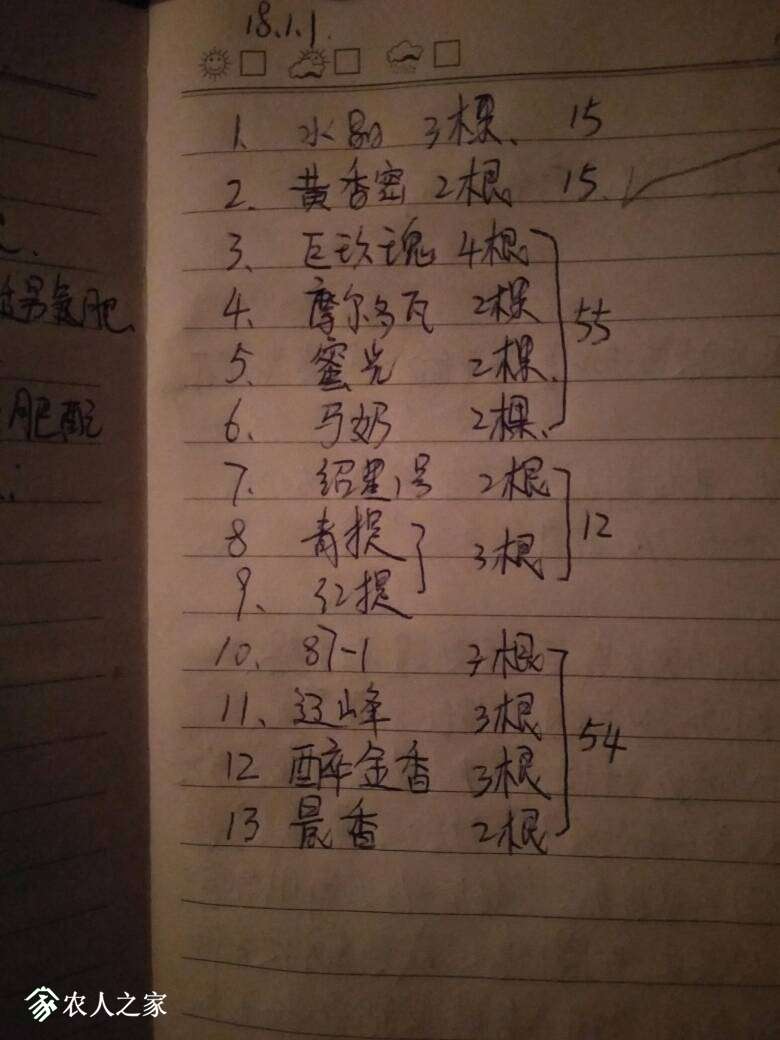 18.1.1
1. 水晶 3棵. 15
2. 黄香蜜 2根 15.
3. 巨玫瑰 4根
4. 摩尔多瓦 2棵
55
5. 蜜光 2棵.
6. 马奶 2棵.
7. 绍星1号 2根
8 青提
3根
12
9. 红提
10. 87-1 3根
11. 辽峰 3根
54
12 醉金香 3根
13 晨香 2根
肥
肥配
农人之家